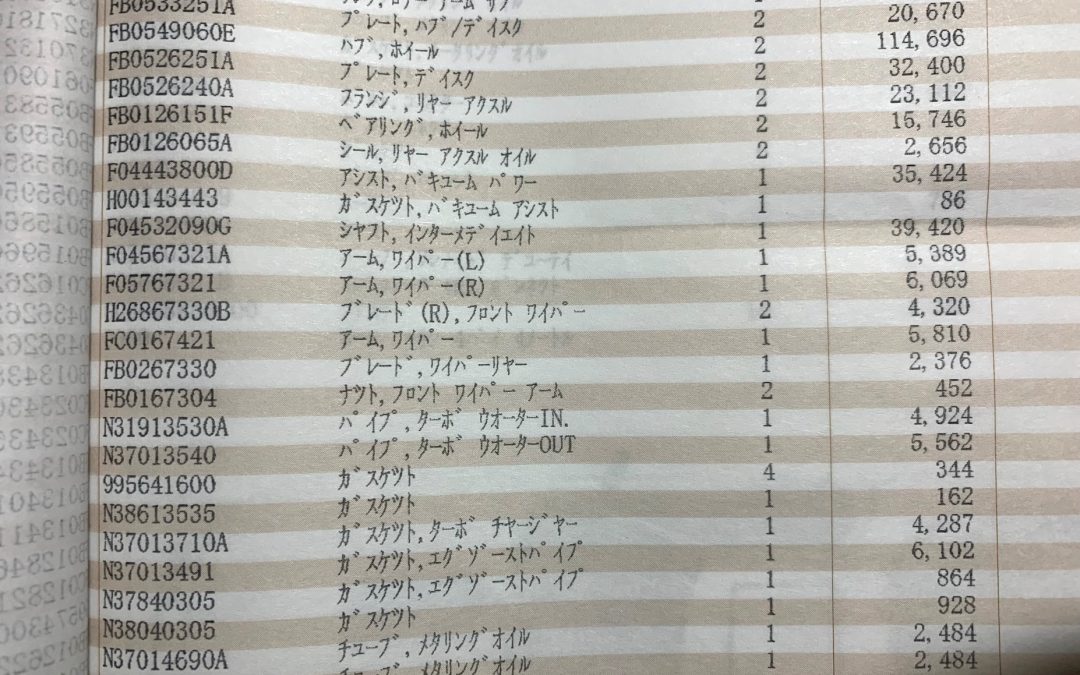 FB0533251A ﾌﾟﾚｰﾄ,ﾊﾌﾞ/ﾃﾞｲｽｸ 2 20,670
FB0549060E ﾊﾌﾞ,ﾎｲｰﾙ 2 114,696
FB0526251A ﾌﾟﾚｰﾄ,ﾃﾞｲｽｸ 2 32,400
FB0526240A ﾌﾗﾝｼﾞ,ﾘﾔｰ ｱｸｽﾙ 2 23,112
FB0126151F ﾍﾞｱﾘﾝｸﾞ,ﾎｲｰﾙ 2 15,746
FB0126065A ｼｰﾙ,ﾘﾔｰ ｱｸｽﾙ ｵｲﾙ 2 2,656
F04443800D ｱｼｽﾄ,ﾊﾞｷﾕｰﾑ ﾊﾟﾜｰ 1 35,424
H00143443 ｶﾞｽｹﾂﾄ,ﾊﾞｷﾕｰﾑ ｱｼｽﾄ 1 86
F04532090G ｼﾔﾌﾄ,ｲﾝﾀｰﾒﾃﾞｲｴｲﾄ 1 39,420
F04567321A ｱｰﾑ,ﾜｲﾊﾟｰ(L) 1 5,389
F05767321 ｱｰﾑ,ﾜｲﾊﾟｰ(R) 1 6,069
H26867330B ﾌﾞﾚｰﾄﾞ(R),ﾌﾛﾝﾄ ﾜｲﾊﾟｰ 2 4,320
FC0167421 ｱｰﾑ,ﾜｲﾊﾟｰ 1 5,810
FB0267330 ﾌﾞﾚｰﾄﾞ,ﾜｲﾊﾟｰﾘﾔｰ 1 2,376
FB0167304 ﾅﾂﾄ,ﾌﾛﾝﾄ ﾜｲﾊﾟｰ ｱｰﾑ 2 452
N31913530A ﾊﾟｲﾌﾟ,ﾀｰﾎﾞ ｳｵｰﾀｰIN. 1 4,924
N37013540 ﾊﾟｲﾌﾟ,ﾀｰﾎﾞ ｳｵｰﾀｰOUT 1 5,562
995641600 ｶﾞｽｹﾂﾄ 4 344
N38613535 ｶﾞｽｹﾂﾄ 1 162
N37013710A ｶﾞｽｹﾂﾄ,ﾀｰﾎﾞ ﾁﾔｰｼﾞﾔｰ 1 4,287
N37013491 ｶﾞｽｹﾂﾄ,ｴｸﾞｿﾞｰｽﾄﾊﾟｲﾌﾟ 1 6,102
N37840305 ｶﾞｽｹﾂﾄ,ｴｸﾞｿﾞｰｽﾄﾊﾟｲﾌﾟ 1 864
N38040305 ｶﾞｽｹﾂﾄ 1 928
N37014690A ﾁﾕｰﾌﾞ,ﾒﾀﾘﾝｸﾞｵｲﾙ 1 2,484
ﾒﾀﾘﾝｸﾞｵｲﾙ 1 2,484